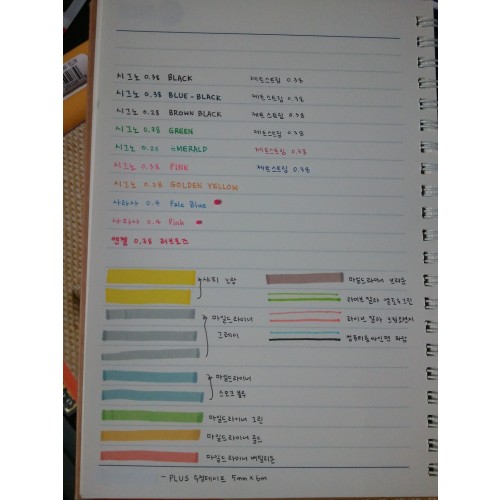 시그노 0.38 BLACK
제트스트림 0.38
시그노 0.38 BLUE-BLACK
제트스트림 0.38
시그노 0.28 BROWN BLACK
제트스트림 0.38
시그노 0.38 GREEN
제트스트림 0.38
시그노 0.28 EMERALD
제트스트림 0.38
시그노 0.38 PINK
제트스트림 0.38
시그노 0.28 GOLDEN YELLOW
사라사 0.4 Pale Blue
사라사 0.4 Pink
0.38 러브로즈
노랑
마일드라이너 브라운
라이브칼라 옐로우그린
마일드라이너
그레이
라이브칼라
컴퓨터용사인펜 파랑
마일드라이너
스모크블루
마일드라이너 그린
마일드라이너 골드
마일드라이너 버밀리온
- PLUS 수정테이프 5mm × 6m